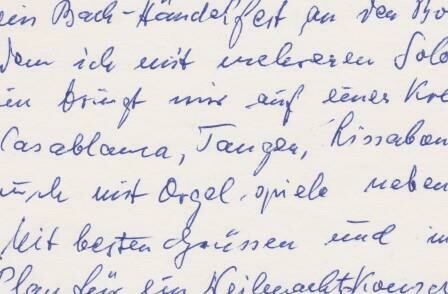 ein Bach-Händelfest an den Bo
dem ich mit mehreren Solo
in bringt mir auf einer Kre
Casablanca, Tanger, Lissabon
uch mit Orgel spiele neben
Mit besten Grüssen und in
Plan für ein Weihnachtskonze